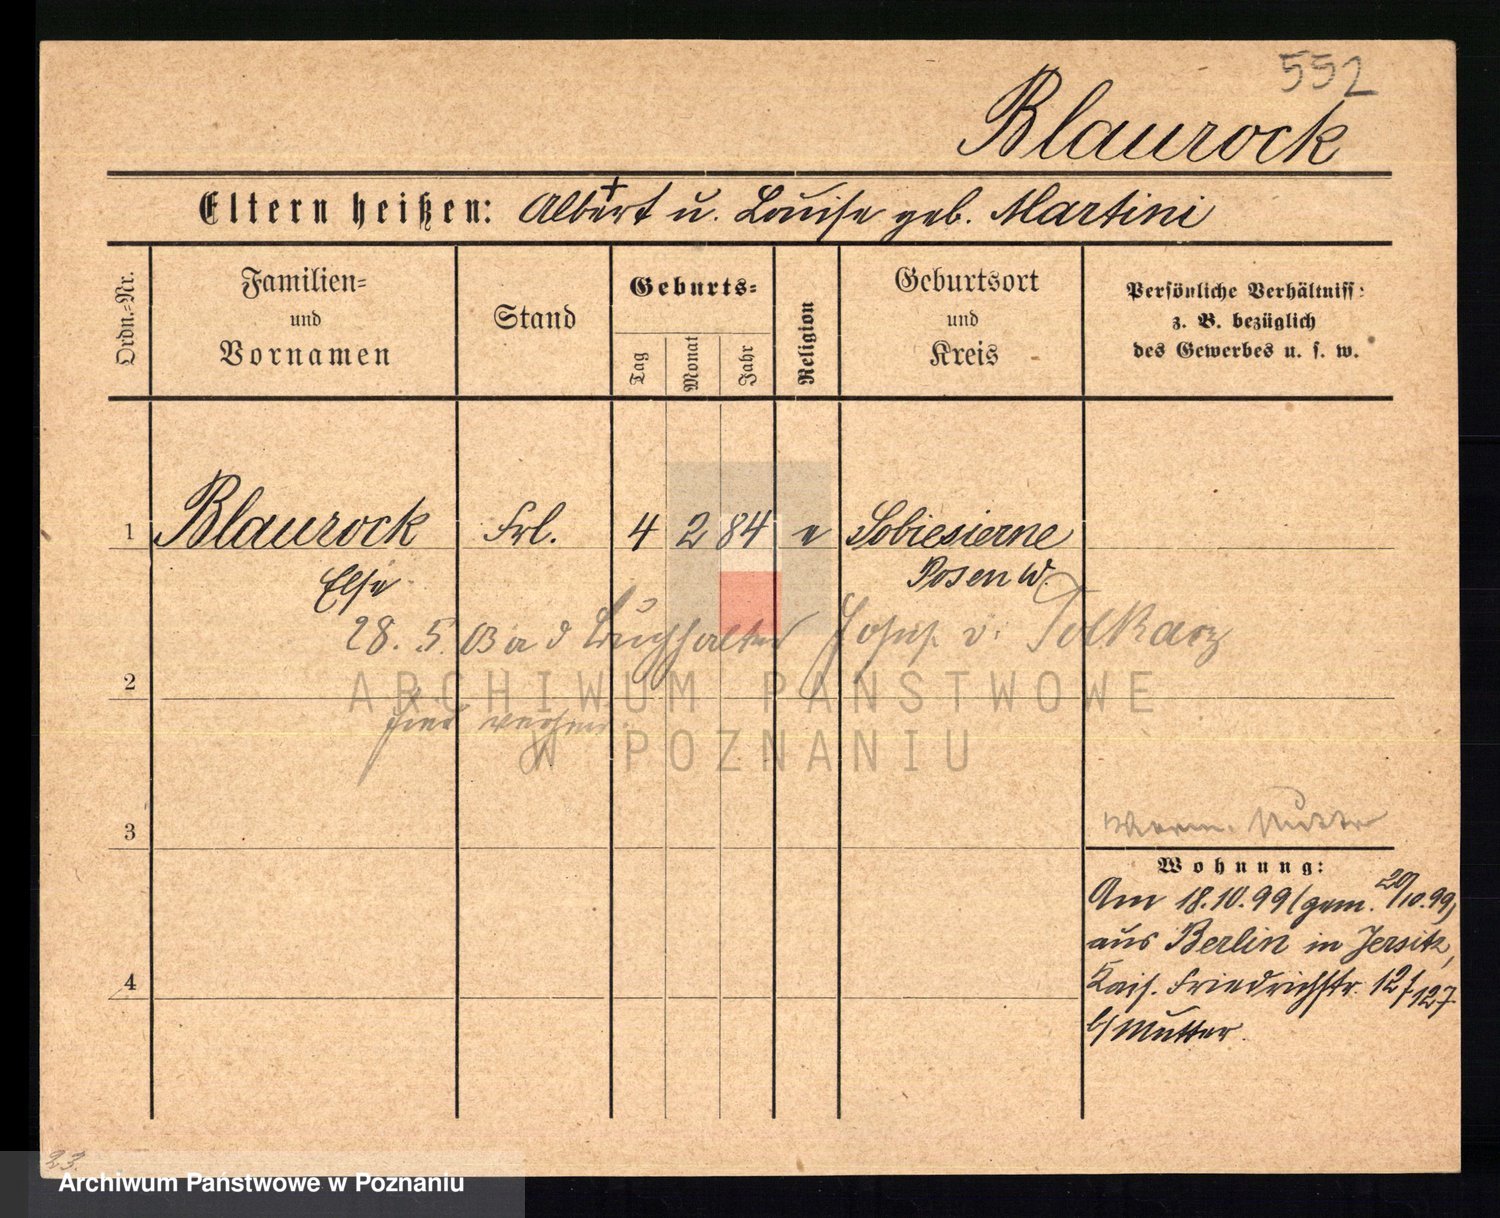 552
Blaurock
Eltern heißen: Albert + u. Louise geb. Martini
Ordn.-Nr.
Familien- und Vornamen
Stand
Geburts-
Tag
Monat
Jahr
Religion
Geburtsort und Kreis
Persönliche Verhältniss:
z. B. bezüglich
des Gewerbes u. s. w.
1 Blaurock Frl. 4 2 84 e Sobiesierne
Else Posen W.
28. 5. 03 a d Buchhalter Josef v.
2
ARCHIWUM PAŃSTWOWE
hier
W POZNANIU
3
Mutter
Wohnung:
Am 18.10.99 (gem. 20/10.99)
aus Berlin in Jersitz,
Kais. Friedrichstr. 127
b/ Mutter.
4
23.
Archiwum Państwowe w Poznaniu